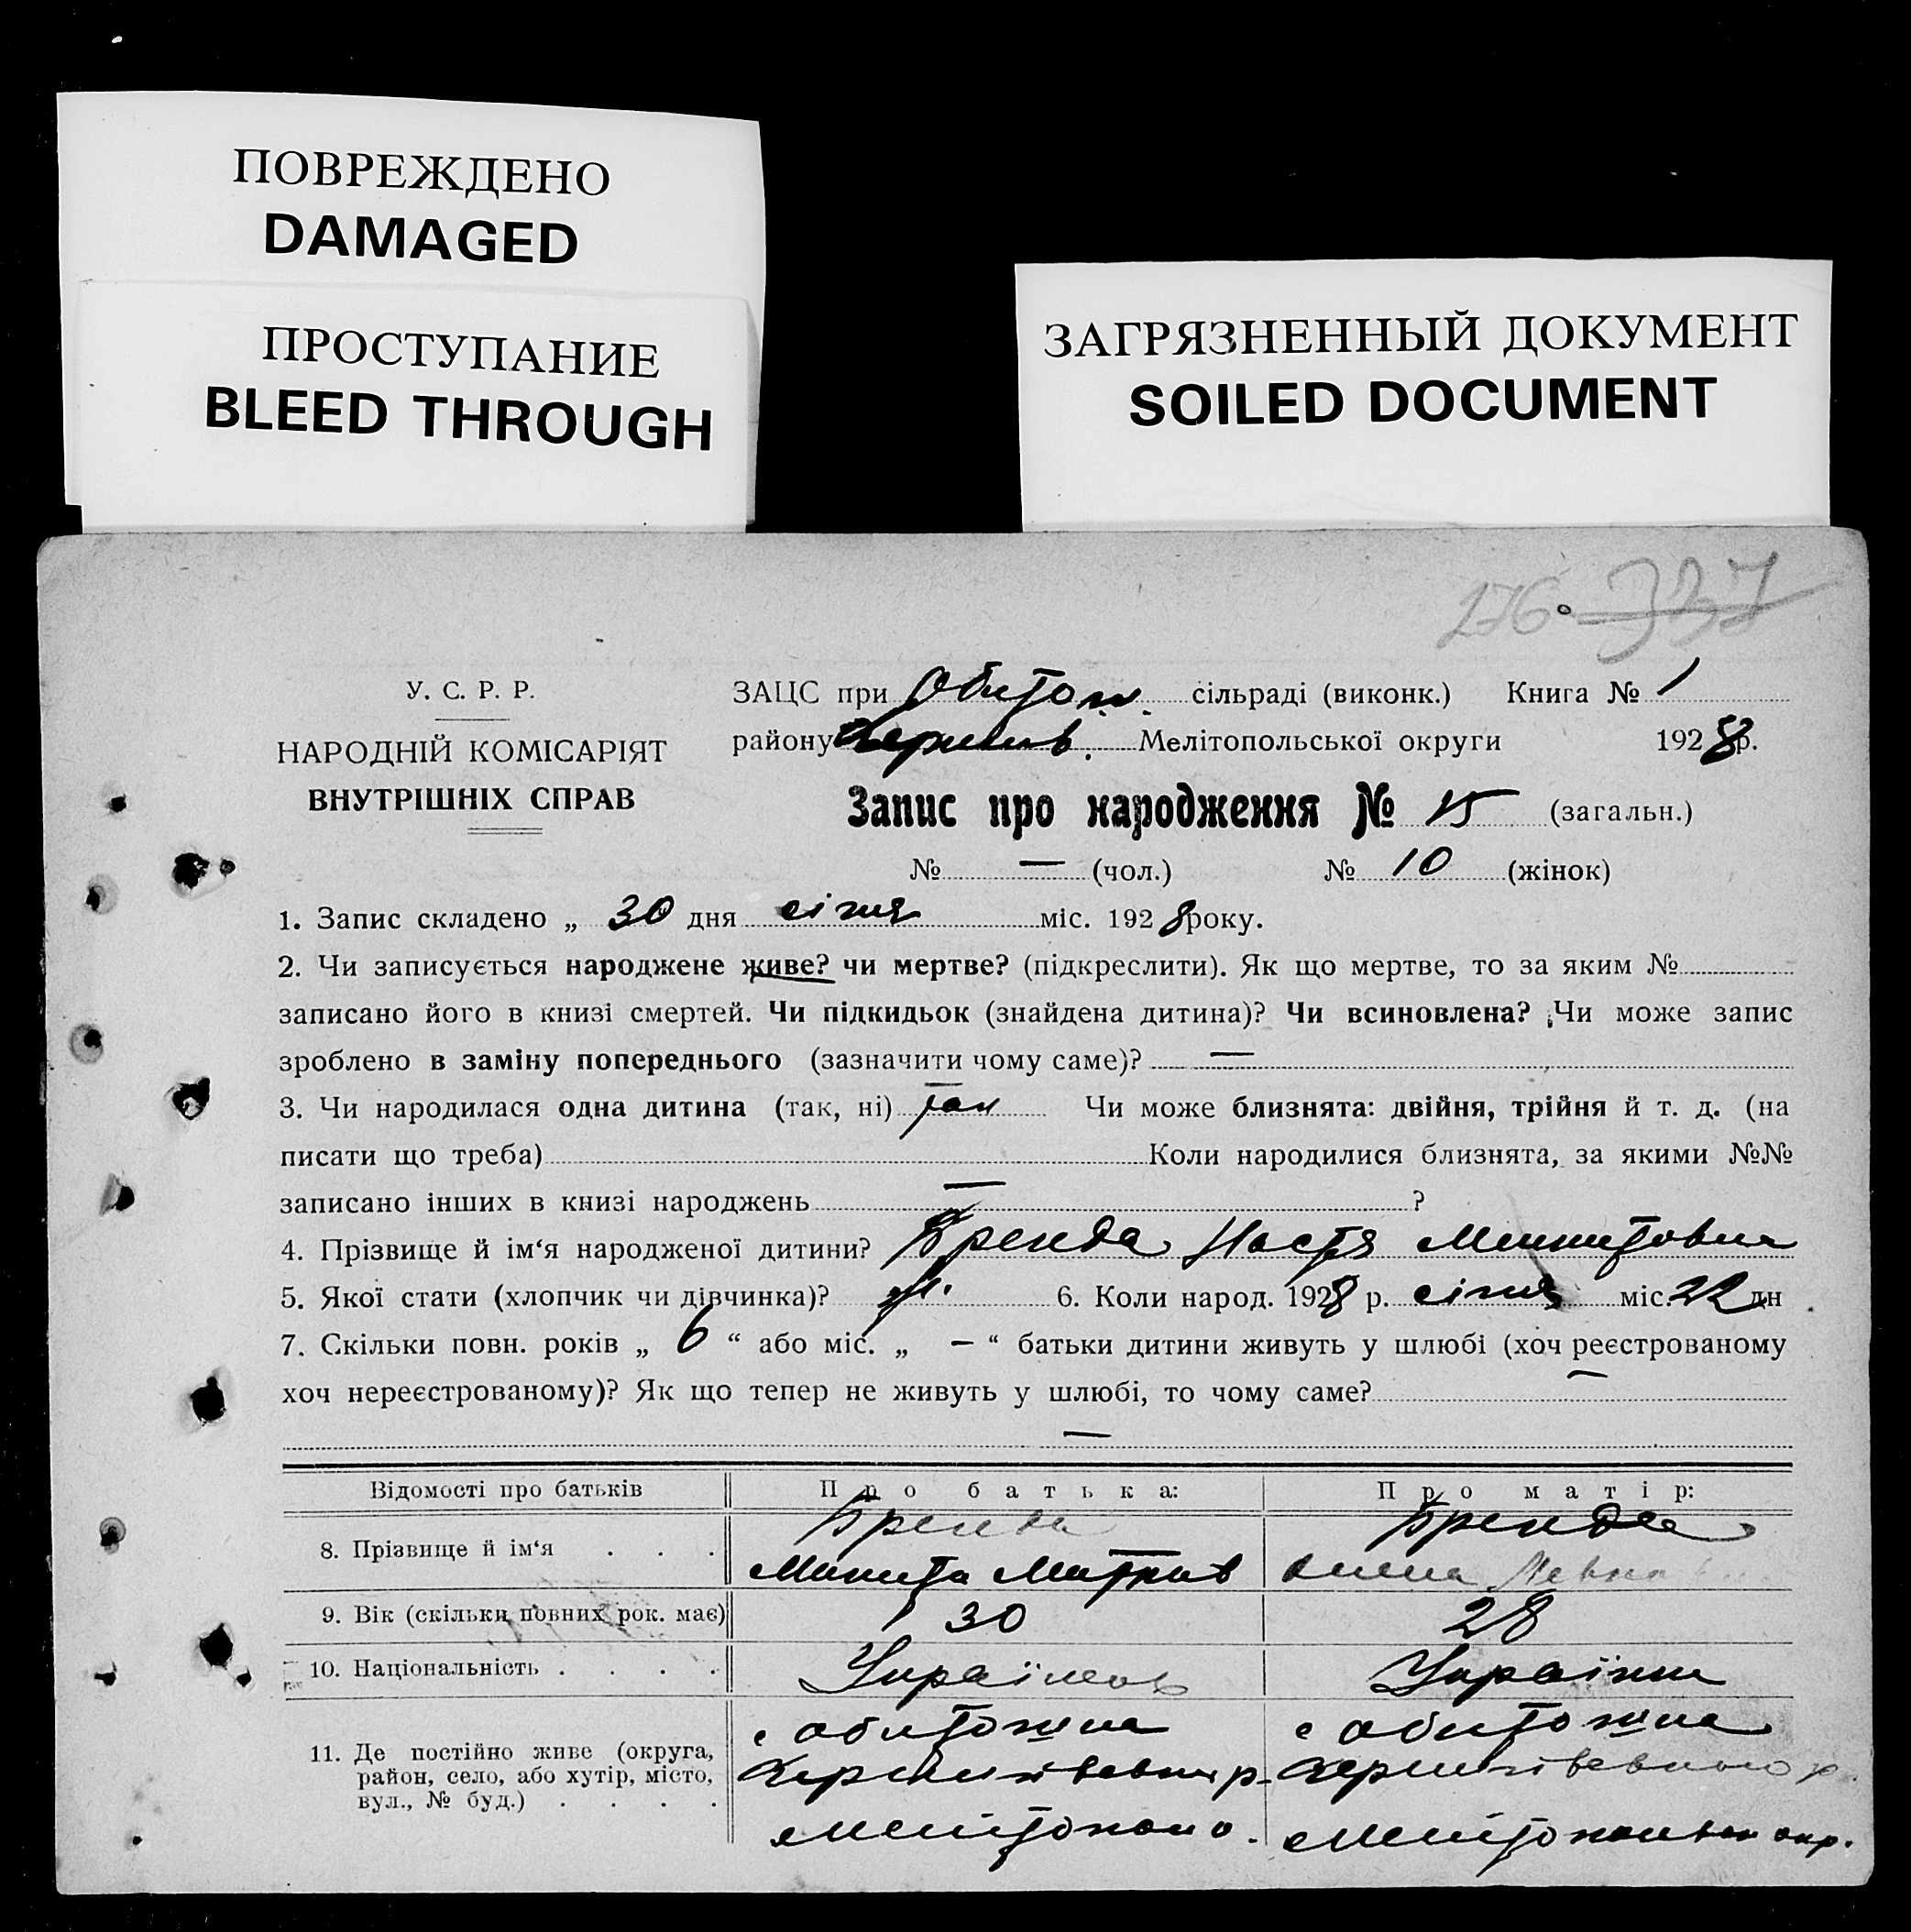 ПОВРЕЖДЕНО
DAMAGED
ПРОСТУПАНИЕ
BLEED THROUGH
ЗАГРЯЗНЕННЫЙ ДОКУМЕНТ
SOILED DOCUMENT
276 337
У. С. Р. Р.
НАРОДНІЙ КОМІСАРІЯТ
ВНУТРІШНІХ СПРАВ
ЗАЦС при Обиточн. сільраді (виконк.) Книга № 1
району Черниг. Мелітопольської округи 1928 р.
Запис про народження № 15 (загальн.)
№ — (чол.) № 10 (жінок)
1. Запис складено „ 30 дня січня міс. 1928 року.
2. Чи записується народжене живе? чи мертве? (підкреслити). Як що мертве, то за яким №
записано його в книзі смертей. Чи підкидьок (знайдена дитина)? Чи всиновлена? Чи може запис
зроблено в заміну попереднього (зазначити чому саме)? —
3. Чи народилася одна дитина (так, ні) так Чи може близнята: двійня, трійня й т. д. (на
писати що треба) Коли народилися близнята, за якими №№
записано інших в книзі народжень — ?
4. Прізвище й ім‘я народженої дитини? Бренда Настя Микитовна
5. Якої стати (хлопчик чи дівчинка)? 6. Коли народ. 1928 р. січня міс. 22 дн
7. Скільки повн. років „ 6 “ або міс. „ — “ батьки дитини живуть у шлюбі (хоч реєстрованому
хоч нереєстрованому)? Як що тепер не живуть у шлюбі, то чому саме? —
—
Відомості про батьків Про батька: Про матір:
8. Прізвище й ім‘я . . . Бренда Бренда
Микита Митров Олена
9. Вік (скільки повних рок. має) 30 28
10. Національність . . . . Українец Українка
11. Де постійно живе (округа, район, село, або хутір, місто, вул., № буд.) . . . .
с Обиточна с Обиточна
р. р.
Мелітопол о. Мелітопольск окр.